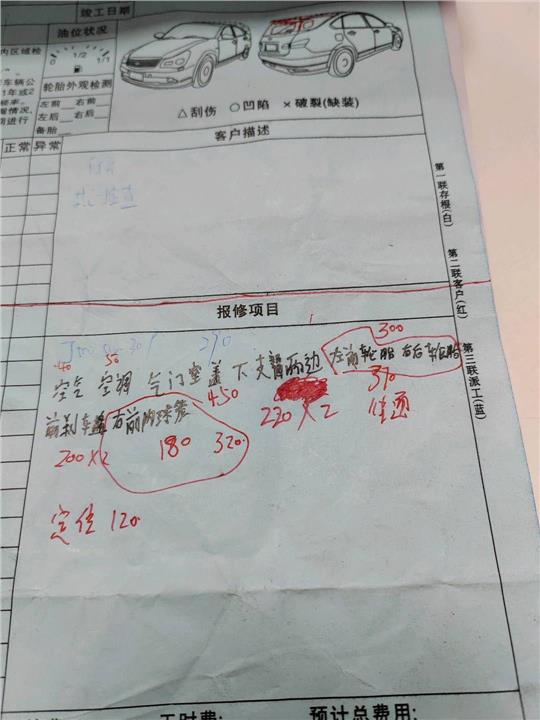 竣工日期
油位状况
0 1/2 1/1
内区域检
轮胎外观检测
左前__右前__
左后__右后__
备胎__
△刮伤 ○凹陷 ×破裂(缺装)
车辆公
1年或2
频率。
情况,
进行
正常 异常
客户描述
检查
第一联存根(白)
第二联客户(红)
第三联派工(蓝)
报修项目
290
300
40 50
空气 空调 气门室盖 下支臂两边 左前轮胎 右后轮胎
450
370
前刹车盘 右前内球笼
220×2 佳通
200×2 180 320
定位 120
工时费: 预计总费用: